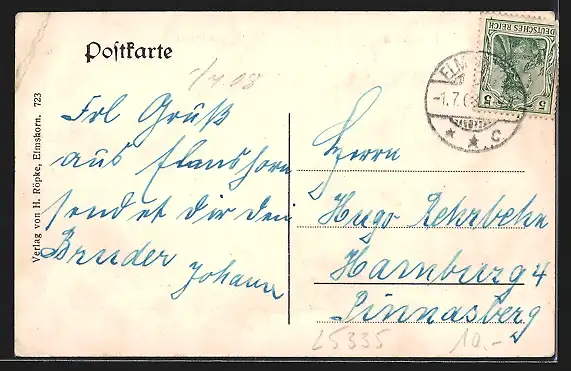 Postkarte
1/7.08
Frl Gruß
aus Elmshorn
sendet dir dein
Bruder
Johann
Verlag von H. Röpke, Elmshorn. 723
DEUTSCHES REICH
5 5
ELM
-1.7.0
* * C
Herrn
Hugo Rehrbehn
Hamburg 4
Pinnasberg
L5335
10.-